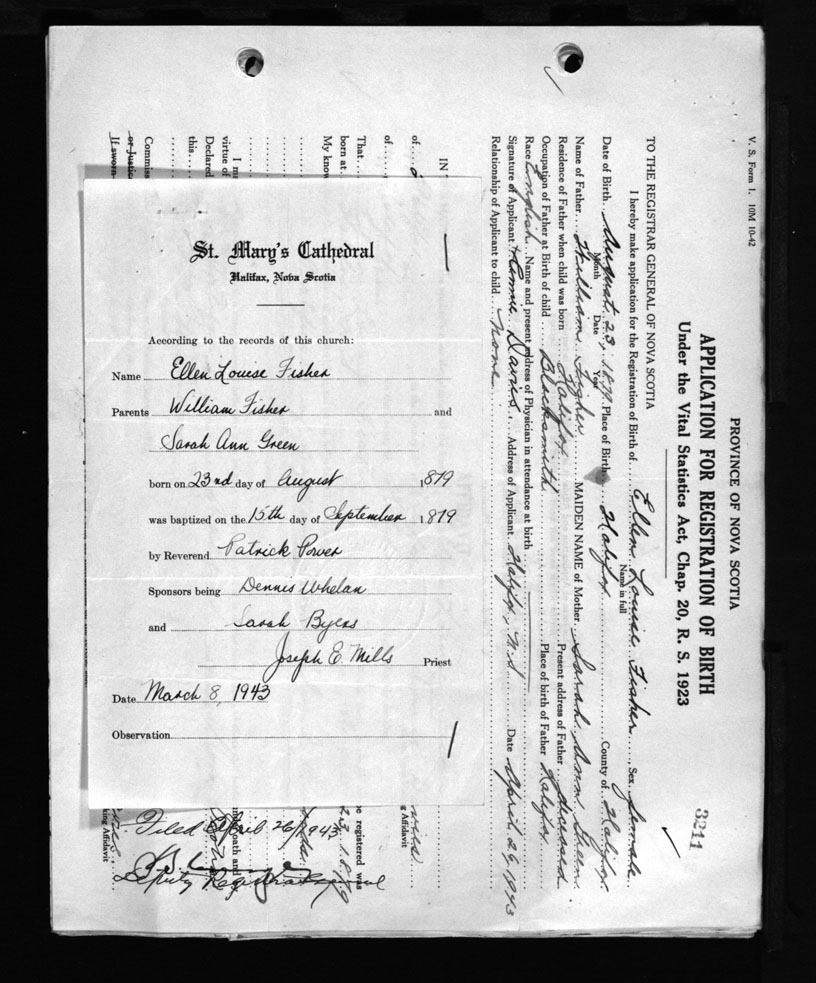 V. S. Form 1. 10M 10-42
PROVINCE OF NOVA SCOTIA
APPLICATION FOR REGISTRATION OF BIRTH
Under the Vital Statistics Act, Chap. 20, R. S. 1923
3211
TO THE REGISTRAR GENERAL OF NOVA SCOTIA
I hereby make application for the Registration of Birth of Ellen Louise Fisher Sex female
Name in full
Date of Birth August 23, 1879 Place of Birth Halifax County of Halifax
Month Date Year
Name of Father William Fisher MAIDEN NAME of Mother Sarah Ann Green
Residence of Father when child was born Halifax Present address of Father deceased
Occupation of Father at Birth of child Blacksmith Place of birth of Father Halifax
Race English Name and present address of Physician in attendance at birth
Signature of Applicant Davis Address of Applicant Halifax, N.S Date April 26, 1943
Relationship of Applicant to child none
IN
of
of
That
born at
My know
I m
virtue of
Declared
this
Commiss
or Justice
If sworn
be registered was
23, 1879
oath and
king Affidavit
St. Mary's Cathedral
Halifax, Nova Scotia
According to the records of this church:
Name Ellen Louise Fisher
Parents William Fisher and
Sarah Ann Green
born on 23nd day of August 1879
was baptized on the 15th day of September 1879
by Reverend Patrick Power
Sponsors being Dennis Whelan
and Sarah Byers
Joseph E. Mills Priest
Date March 8, 1943
Observation
Filed April 26/1943
Deputy Registrar General